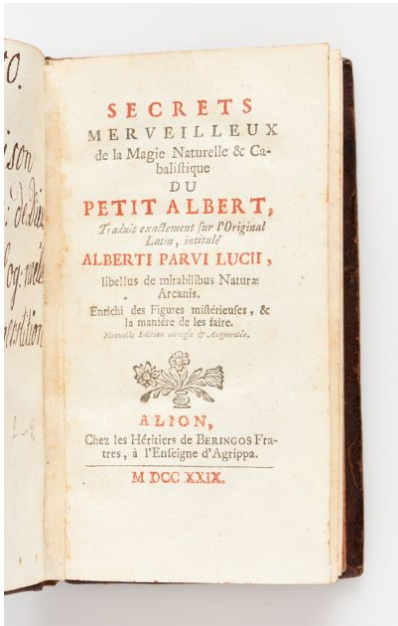 o.
ison
SECRETS
MERVEILLEUX
de la Magie Naturelle & Ca-
baliſtique
DU
PETIT ALBERT,
Traduit exactement ſur l'Original
Latin, intitulé
ALBERTI PARVI LUCII,
libellus de mirabilibus Naturæ
Arcanis.
Enrichi des Figures miſtérieuſes, &
la maniére de les faire.
Nouvelle Edition corrigée & Augmentée.
A LION,
Chez les Héritiers de BERINGOS Fra-
tres, à l'Enſeigne d'Agrippa.
M DCC XXIX.